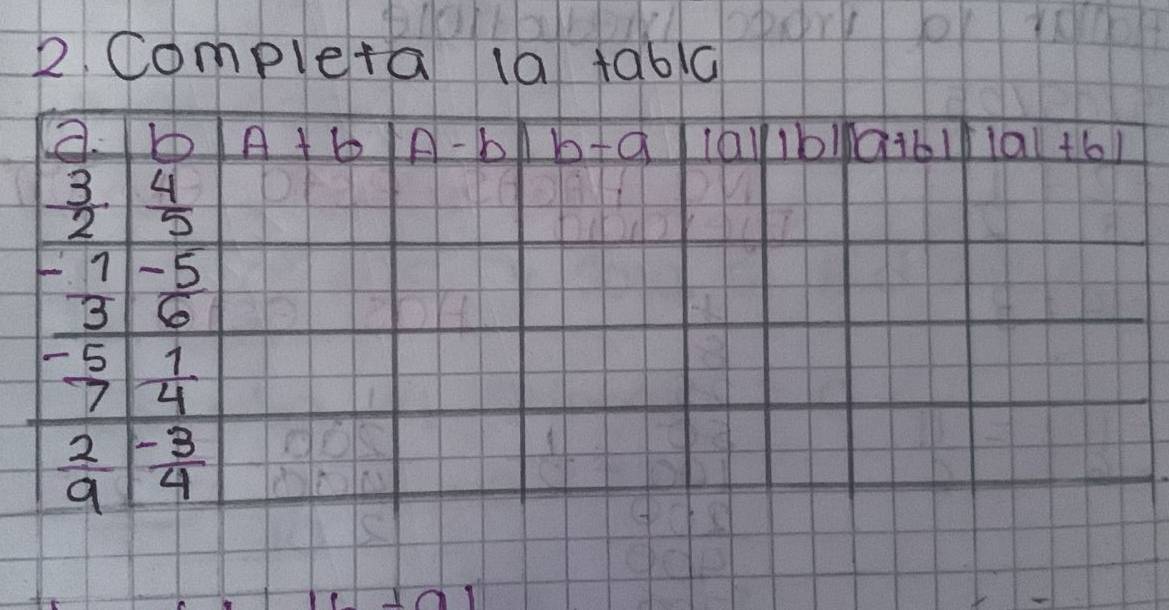 2. Completa la tabla
a. b A + b A - b b - a |a| |b| |a+b| |a| + b|
3/2 4/5
-1/3 -5/6
-5/7 1/4
2/9 -3/4